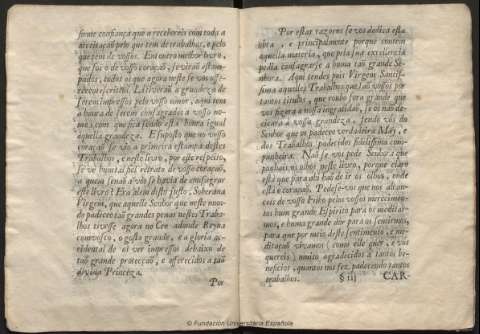 firme confiança que o recebereis com toda a
aceitação pelo que tem de trabalhos, e pelo
que tem de vossos. Em outro melhor livro,
que foi o de vosso coração, se virão estam-
pados, todos os que agora neste se vos offe-
recem escritos. Là tiverão a grandeza de
serem impressos pelo vosso amor, aqui tem
a honra de serem consagrados a vosso no-
me, com que fica sendo esta honra igual
àquella grandeza. E supposto que no vosso
coração se vio a primeira estampa destes
Trabalhos, e neste livro, por este respeito,
se ve hum tal fiel retrato de vosso coração,
a quem senaõ a vòs se havia de consagrar
este livro? Era alem disto justo, Soberana
Virgem, que aquelle Senhor que neste mun-
do padeceo taõ grandes penas nestes Traba-
lhos tivesse agora no Ceo adonde Reyna
comvosco, o gosto grande, e a gloria ac-
cidental de os ver impressos debaixo de
taõ grande protecçaõ, e offerecidos a taõ
divina Princeza.
Por
Por estas razoens se vos dedica esta
obra, e principalmente porque contem
aquella materia, que pela sua excellencia
pedia consagrarse a huma taõ grande Se-
nhora. Aqui tendes pois Virgem Santis-
sima aquelles Trabalhos que saõ vossos por
tantos titulos, que roubo fora grande que
vos fizera a nossa ingratidaõ, se os naõ de-
dicara á vossa grandeza. Sende vós do
Senhor que os padeceo verdadeira Mãy, e
dos Trabalhos padecidos fidelissima com-
panheira. Naõ se vos pede Senhora que
ponhais os olhos neste livro, porque claro
está que para ahi haõ de ir os olhos, onde
está o coração. Pedese-vos que nos alcan-
ceis de vosso Filho pelos vossos merecimen-
tos hum grande Espirito para os meditar-
mos, e huma grande dor para os sentirmos,
para que por meio deste sentimento, e me-
ditaçaõ vivamos (como elle quer, e vos
quereis) muito agradecidos a tantos be-
neficios, quantos nos fez, padecendo tantos
trabalhos.
§ iij CAR-
© Fundación Universitaria Española